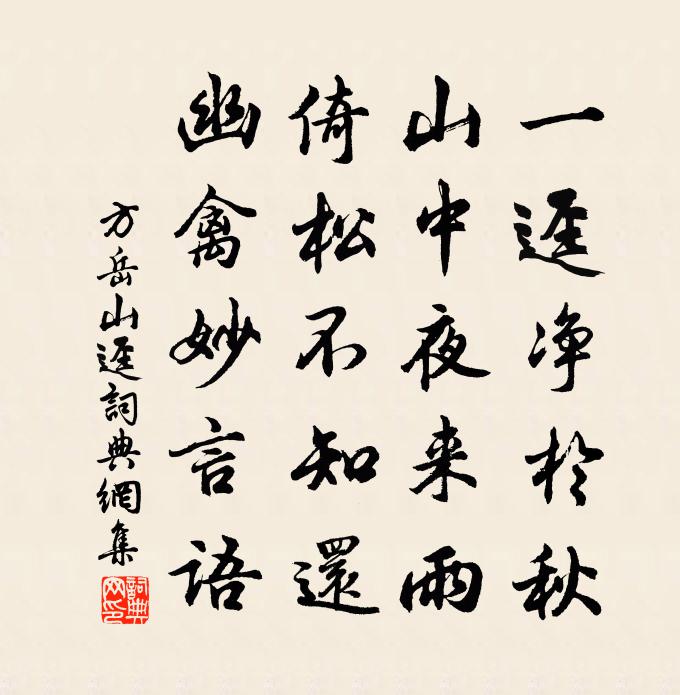 一逕净於秋
山中夜来雨
倚松不知還
幽禽妙言語
方岳山逕詞典網集
詞典网印